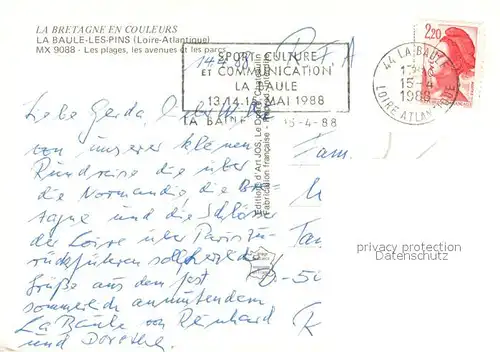 LA BRETAGNE EN COULEURS
LA BAULE-LES-PINS (Loire-Atlantique)
MX 9088 - Les plages, les avenues et les parcs
2,20
SPORT CULTURE
ET COMMUNICATION
LA BAULE
13.14.15 MAI 1988
LA BAULE 15-4-88
44 LA BAULE
15-4
1988
LOIRE ATLANTIQUE
Editions d'Art JOS, Le
Fabrication française
Liebe Gerda,
von unserer kleinen
Rundreise die über
die Normandie, die Bre
tagne und die Schlösser
der Loire über Paris zu-
rückführen soll,
Grüße aus dem fast
sommerlich anmutendem
La Baule von Reinhard
und Dorothee.
Fam.
privacy protection
Datenschutz